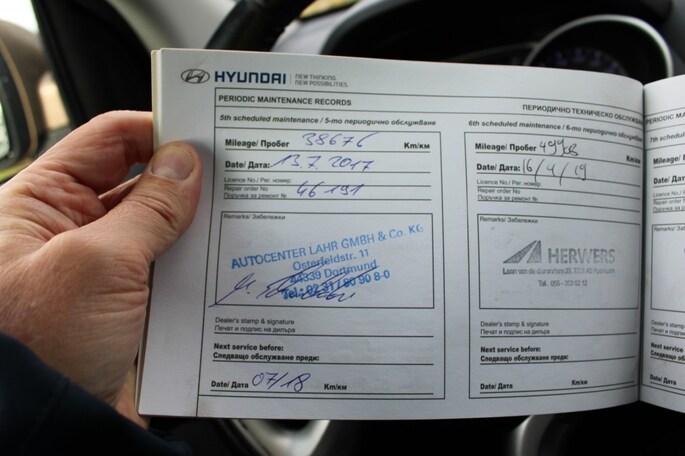 HYUNDAI | NEW THINKING. NEW POSSIBILITIES.
PERIODIC MAINTENANCE RECORDS
ПЕРИОДИЧНО ТЕХНИЧЕСКО ОБСЛУЖВАН
5th scheduled maintenance / 5-то периодично обслужване
Mileage/ Пробег 38676 Km/км
Date/ Дата: 13.7.2017
Licence No./ Рег. номер:
Repair order No 46191
Поръчка за ремонт №
Remarks/ Забележки
AUTOCENTER LAHR GMBH & Co. KG
Osterfeldstr. 11
44339 Dortmund
Tel.: 02 31 / 80 90 8-0
Dealer's stamp & signature
Печат и подпис на дилъра
Next service before:
Следващо обслужване преди:
Date/ Дата 07/18 Km/км
6th scheduled maintenance / 6-то периодично обслужване
Mileage/ Пробег Km/км
Date/ Дата: 16/4/19
Licence No./ Рег. номер:
Repair order No
Поръчка за ремонт №
Remarks/ Забележки
HERWERS
Tel. 055
Dealer's stamp & signature
Печат и подпис на дилъра
Next service before:
Следващо обслужване преди:
Date/ Дата Km/км
PERIODIC MAI
7th sche
Mileage
Date/ Да
Licence No
Repair orde
Поръчка за
Remarks/
Dealer's st
Печат и по
Next servic
Следващо
Date/ Дата